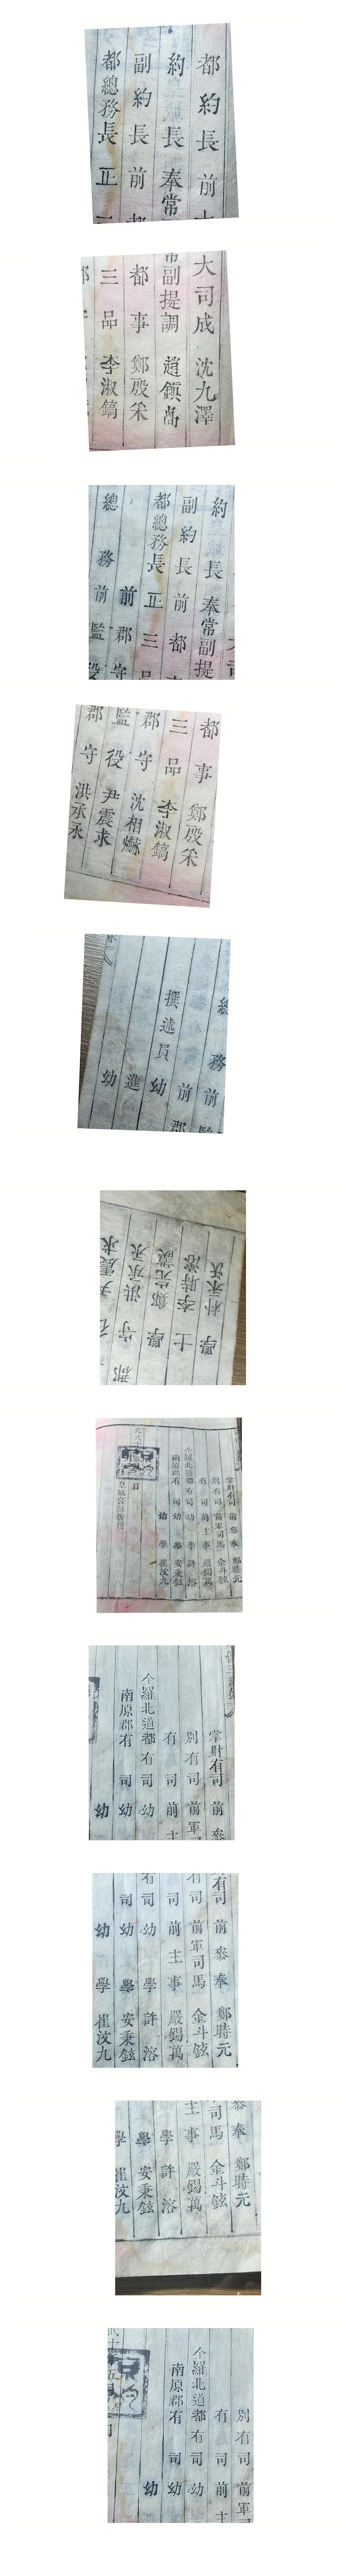 都約長 前
約長 奉常
副約長 前
都總務長 正
大司成 沈九澤
常副提調 趙鎭卨
都事 鄭殷采
三品 李淑鎬
約長 奉常副提
副約長 前 都
都總務長 正 三
前 郡守
總務 前 監役
都事 鄭殷采
三品 李淑鎬
郡守 沈相爀
監役 尹震求
郡守 洪承永
總務 前 監
前 郡
撰述員 幼
進
幼
學 朴
士 李時
學 鄭
守 洪承永
尹震求
掌財有司 前參奉 鄭時元
別有司 前軍司馬 金斗鉉
有司 前主事 嚴錫萬
全羅北道都有司 幼學 許溶
南原郡有司 幼學 安秉鉉
幼學 崔汶九
掌財有司 前 參
別有司 前軍
有司 前主
全羅北道都有司 幼
南原郡有司 幼
幼
有司 前參奉 鄭時元
有司 前軍司馬 金斗鉉
司 前主事 嚴錫萬
有司 幼學 許溶
司 幼學 安秉鉉
幼學 崔汶九
參奉 鄭時元
司馬 金斗鉉
主事 嚴錫萬
學 許溶
學 安秉鉉
學 崔汶九
別有司 前軍
有司 前主
全羅北道都有司 幼
南原郡有司 幼
幼